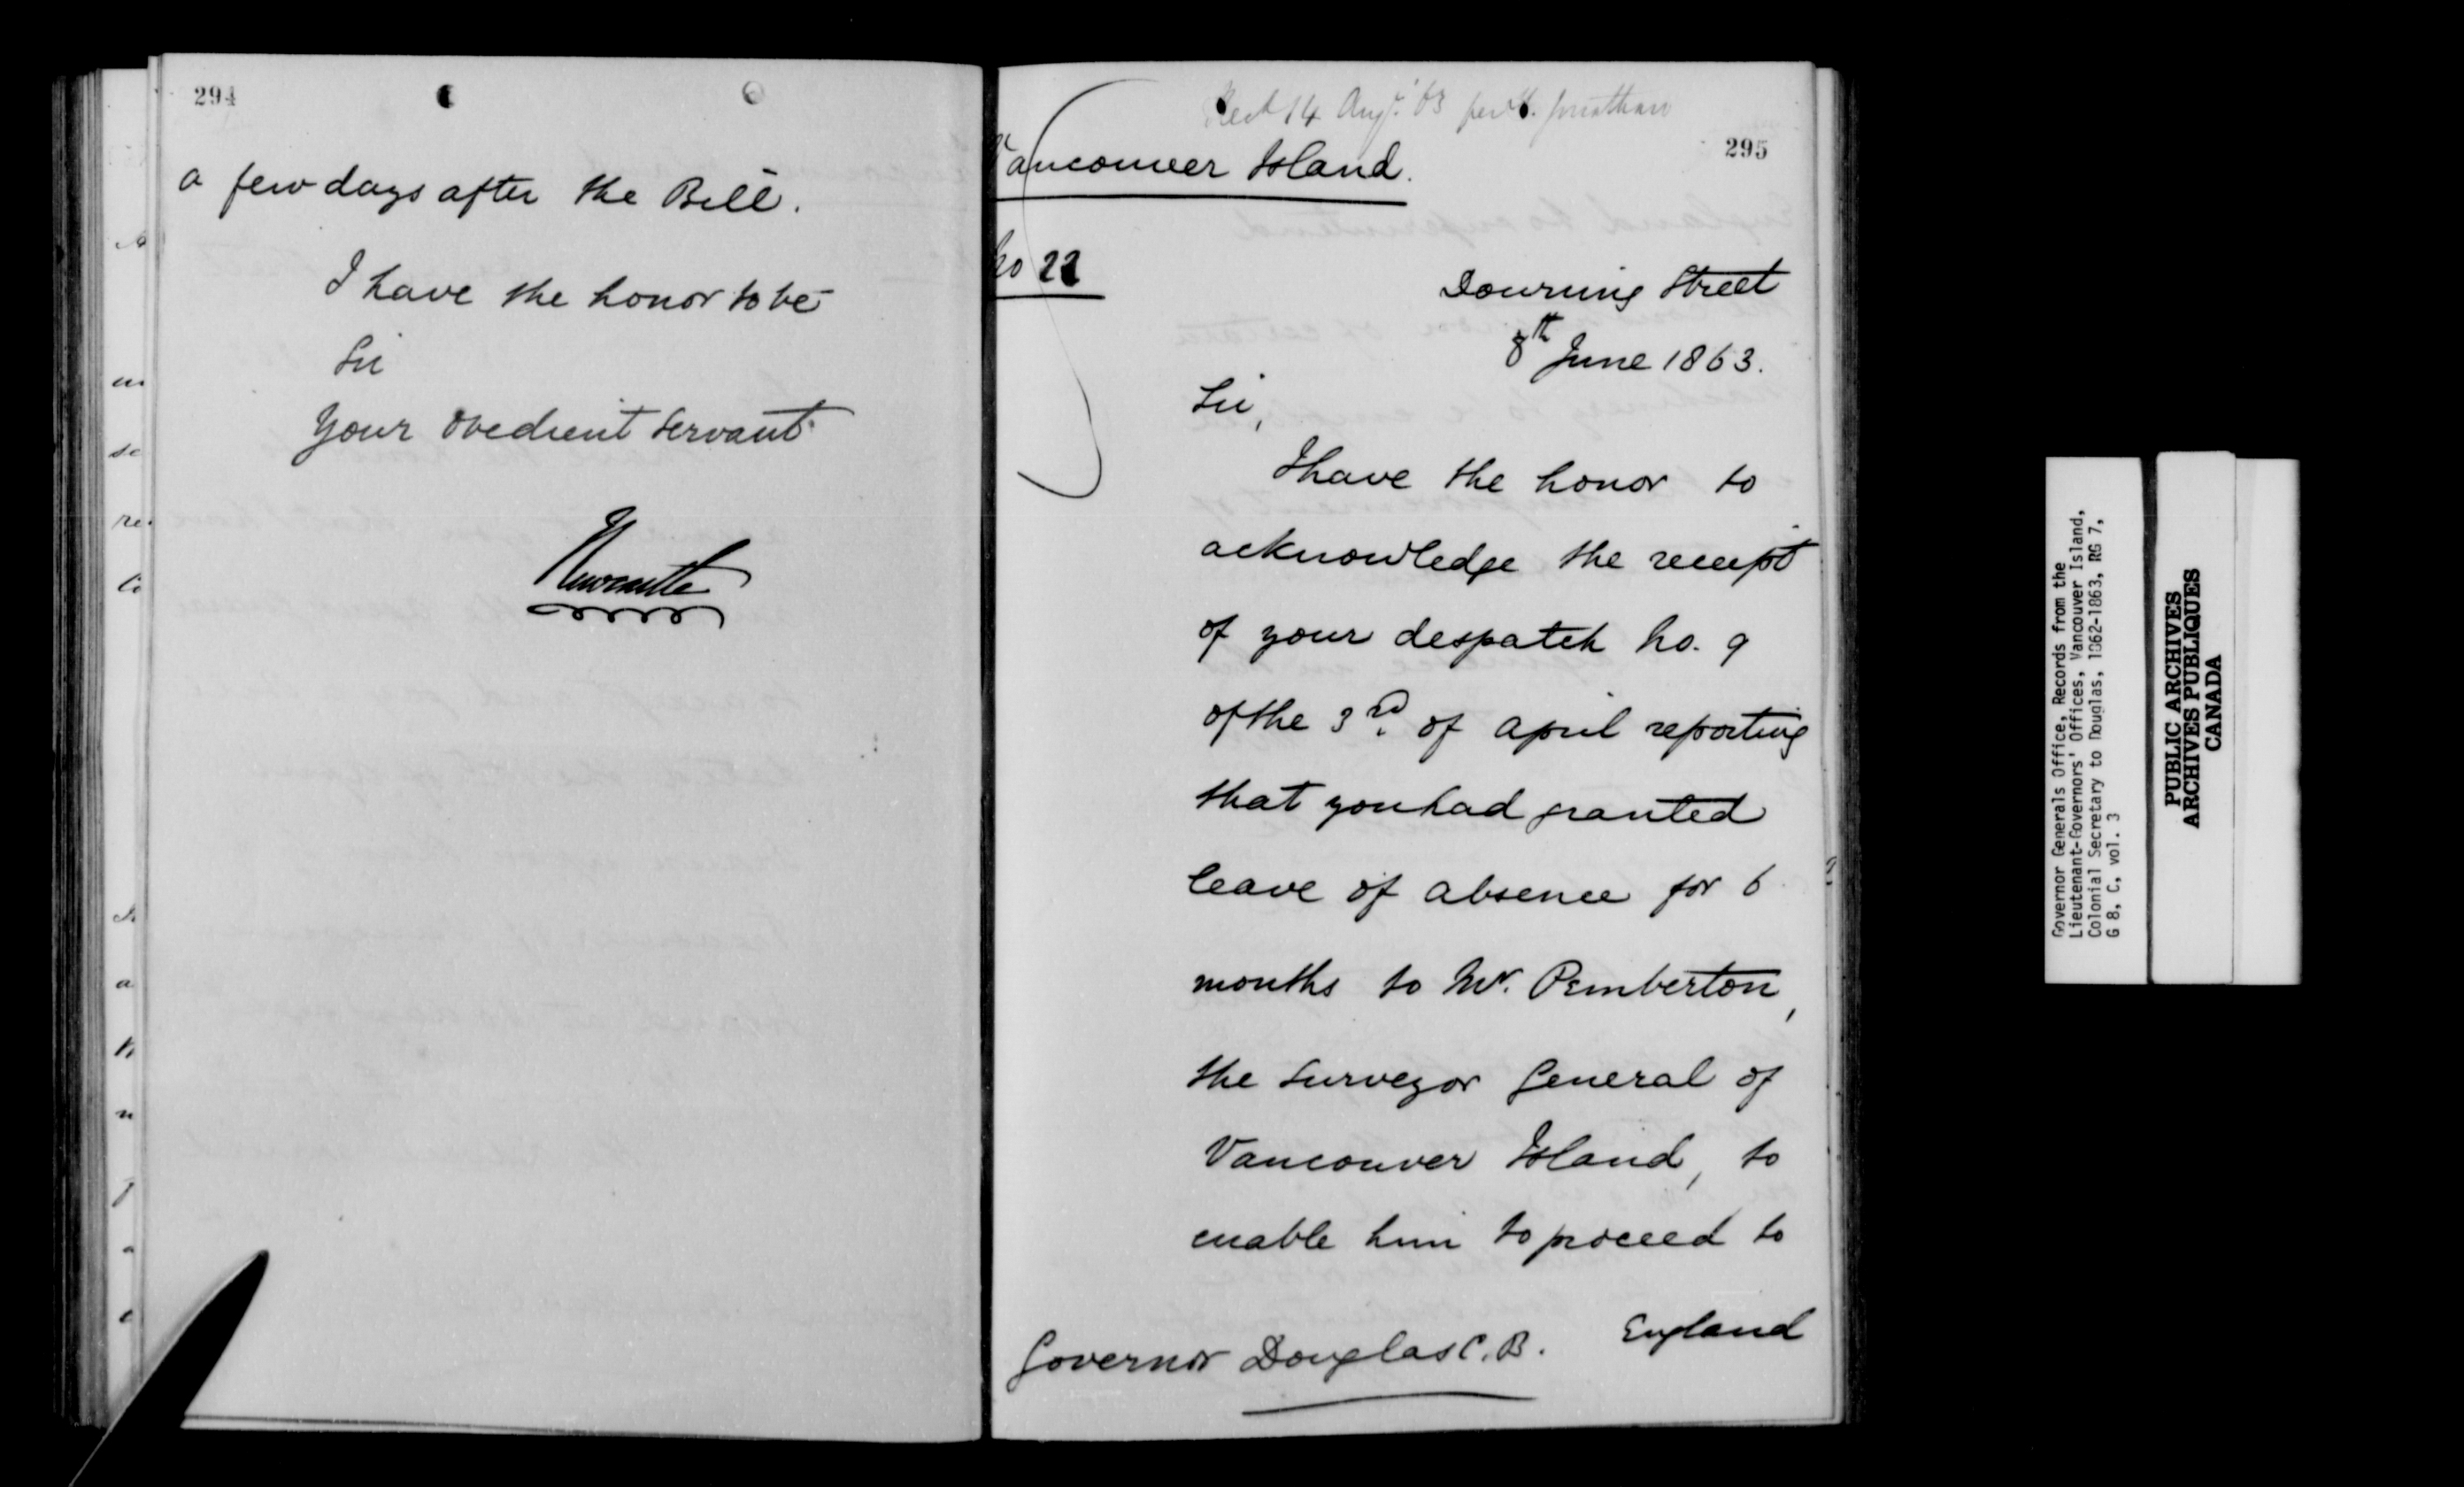 294
a few days after the Bill.
I have the honor to be
Sir
Your obedient servant
Newcastle
Recd 14 Augt. '63 per Jonathan
295
Vancouver Island.
No 22
Downing Street
8th June 1863.
Sir,
I have the honor to
acknowledge the receipt
of your despatch No. 9
of the 3rd. of April reporting
that you had granted
leave of absence for 6
months to Mr. Pemberton,
the Surveyor General of
Vancouver Island, to
enable him to proceed to
England
Governor Douglas C.B.
Governor Generals Office, Records from the
Lieutenant-Governors' Offices, Vancouver Island,
Colonial Secretary to Douglas, 1862-1863, RG 7,
G 8, C, vol. 3
PUBLIC ARCHIVES
ARCHIVES PUBLIQUES
CANADA